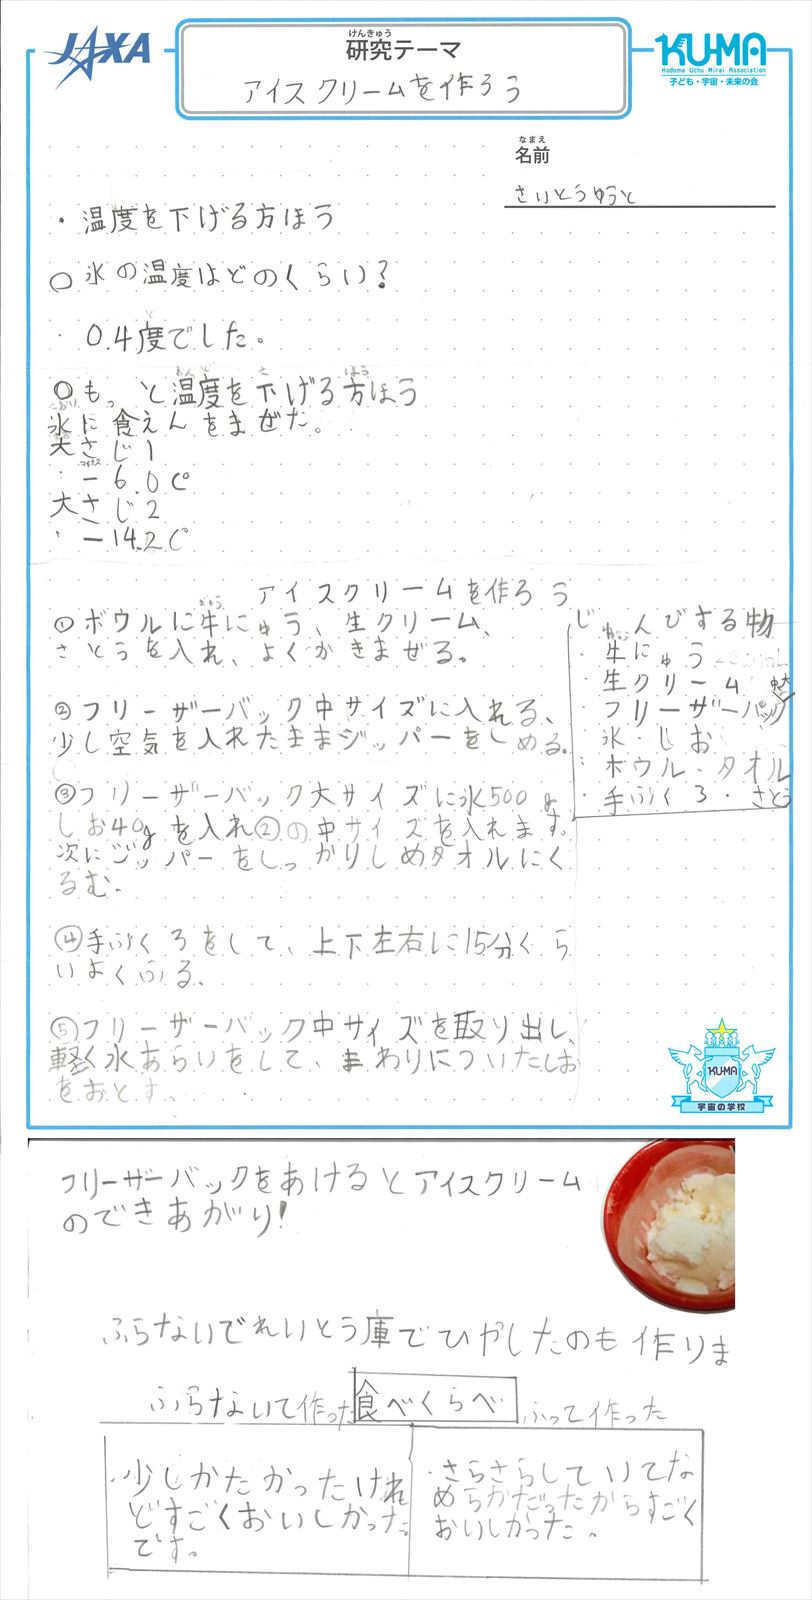 JAXA
けんきゅう
研究テーマ
アイスクリームを作ろう
KU-MA
Kodomo Uchu Mirai Association
子ども・宇宙・未来の会
なまえ
名前
さいとうゆうと
・温度を下げる方ほう
○氷の温度はどのくらい?
・0.4度でした。
○もっと温度を下げる方ほう
氷に食えんをまぜた。
大さじ1
・-6.0℃
大さじ2
・-14.2℃
アイスクリームを作ろう
①ボウルに牛にゅう、生クリーム、
さとうを入れ、よくかきまぜる。
②フリーザーバック中サイズに入れる、
少し空気を入れたままジッパーをしめる。
③フリーザーバック大サイズに氷500g
しお40gを入れ②の中サイズを入れます。
次にジッパーをしっかりしめタオルにく
るむ。
④手ぶくろをして、上下左右に15分くら
いよくふる、
⑤フリーザーバック中サイズを取り出し、
軽く水あらいをして、まわりについたしお
をおとす、
じゅんびする物
・牛にゅう
・生クリーム
・フリーザーバック 中大
・氷・しお
・ボウル・タオル
・手ぶくろ・さとう
KU-MA
宇宙の学校
フリーザーバックをあけるとアイスクリーム
のできあがり!
ふらないでれいとう庫でひやしたのも作りま
食べくらべ
ふらないで作った
ふって作った
・少しかたかったけれ
どすごくおいしかった
です。
・さらさらしていてな
めらかだったからすごく
おいしかった。